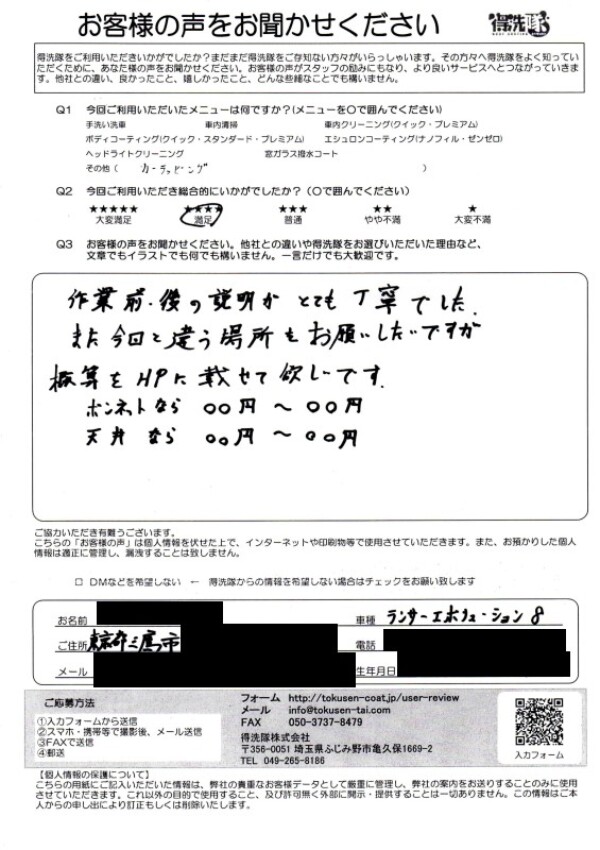 お客様の声をお聞かせください
得洗隊
得洗隊をご利用いただきいかがでしたか？まだまだ得洗隊をご存知ない方々がいらっしゃいます。その方々へ得洗隊をよく知って
いただくために、あなた様の声をお聞かせください。お客様の声がスタッフの励みにもなり、より良いサービスへとつながっていきま
す。他社との違い、良かったこと、嬉しかったこと、どんな些細なことでも構いません。
Q1 今回ご利用いただいたメニューは何ですか？(メニューを○で囲んでください)
手洗い洗車 車内清掃 車内クリーニング(クイック・プレミアム)
ボディコーティング(クイック・スタンダード・プレミアム) エシュロンコーティング(ナノフィル・ゼンゼロ)
ヘッドライトクリーニング 窓ガラス撥水コート
その他（ カーラッピング ）
Q2 今回ご利用いただき総合的にいかがでしたか？（○で囲んでください）
★★★★★ ★★★★ ★★★ ★★ ★
大変満足 満足 普通 やや不満 大変不満
Q3 お客様の声をお聞かせください。他社との違いや得洗隊をお選びいただいた理由など、
文章でもイラストでも何でも構いません。一言だけでも大歓迎です。
作業前・後の説明がとても丁寧でした.
また今回と違う場所もお願いしたいですが
概算をHPに載せて欲しいです.
ボンネットなら ○○円 〜 ○○円
天井なら ○○円 〜 ○○円
ご協力いただき有難うございます。
こちらの「お客様の声」は個人情報を伏せた上で、インターネットや印刷物等で使用させていただきます。また、お預かりした個人
情報は適正に管理し、漏洩することは致しません。
□ ＤＭなどを希望しない ← 得洗隊からの情報を希望しない場合はチェックをお願い致します
お名前 車種 ランサーエボリューション8
ご住所 東京都三鷹市 電話
メール 生年月日
ご応募方法
①入力フォームから送信
②スマホ・携帯等で撮影後、メール送信
③FAXで送信
④郵送
フォーム http://tokusen-coat.jp/user-review
メール info@tokusen-tai.com
FAX 050-3737-8479
得洗隊株式会社
〒356-0051 埼玉県ふじみ野市亀久保1669-2
TEL 049-265-8186
入力フォーム
【個人情報の保護について】
こちらの用紙にご記入いただいた情報は、弊社の貴重なお客様データとして厳重に管理し、弊社の案内をお送りすることのみに使用
させていただきます。これ以外の目的で使用すること、及び許可無く外部に開示・提供することは一切ありません。この情報はご本
人からの申し出により訂正もしくは削除いたします。